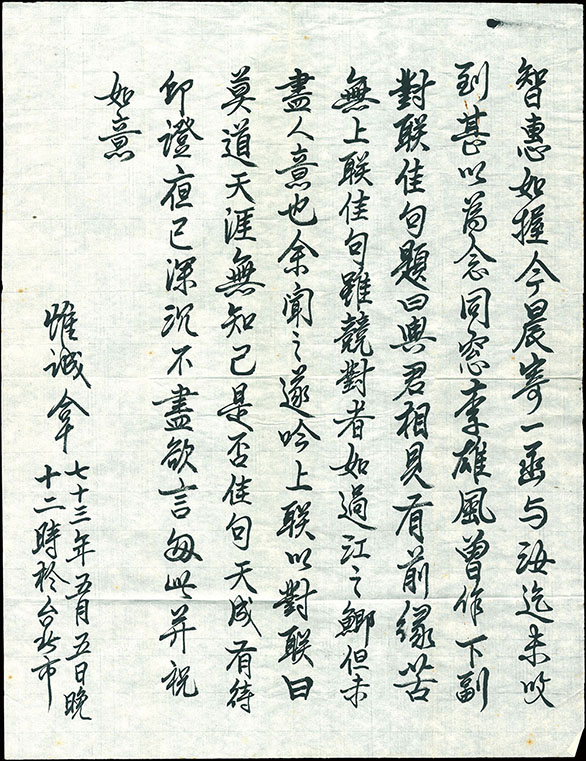 智惠如握今晨寄一函与汝迄未收
到甚以為念同窓李雄風曾作下副
對联佳句題曰與君相見有前緣苦
無上联佳句雖競對者如過江之鯽但未
盡人意也余聞之遂吟上联以對联曰
莫道天涯無知己是否佳句天成有待
印證夜已深沉不盡欲言匆此并祝
如意
惟誠拿
七十三年五月五日晚
十二時於台北市